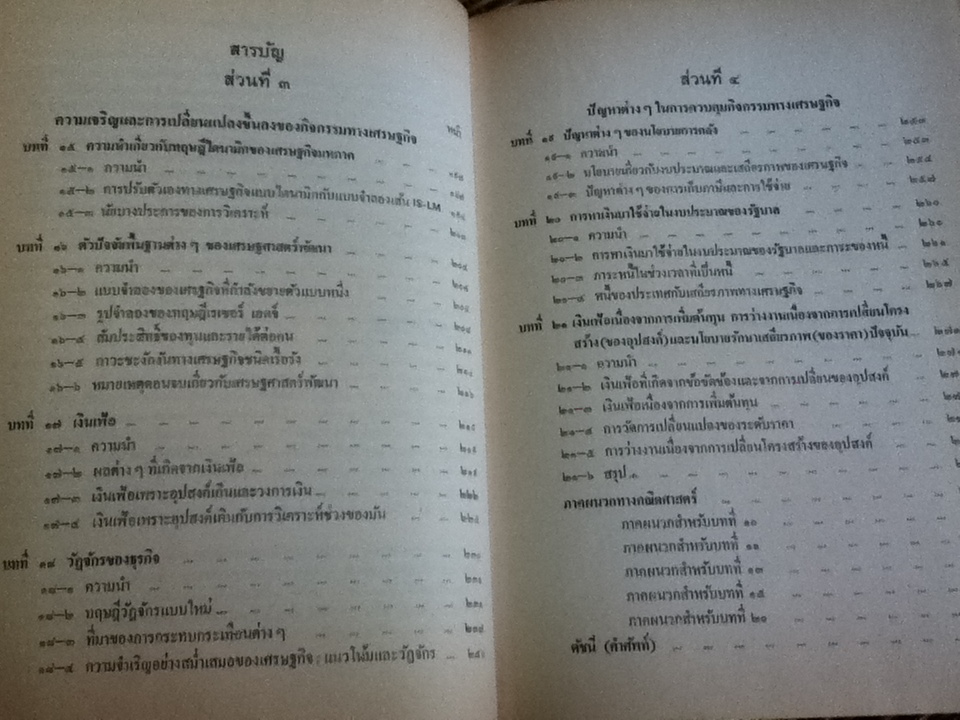 สารบัญ
ส่วนที่ ๓
หน้า
ความเจริญและการเปลี่ยนแปลงขึ้นลงของกิจกรรมทางเศรษฐกิจ
บทที่ ๑๕ ความนำเกี่ยวกับทฤษฎีไดนามิกของเศรษฐกิจมหภาค
๑๕—๑ ความนำ
๑๕—๒ การปรับตัวเองทางเศรษฐกิจแบบไดนามิกกับแบบจำลองเส้น IS-LM
๑๕—๓ นัยบางประการของการวิเคราะห์
บทที่ ๑๖ ตัวปัจจัยพื้นฐานต่าง ๆ ของเศรษฐศาสตร์พัฒนา
๑๖—๑ ความนำ
๑๖—๒ แบบจำลองของเศรฐกิจที่กำลังขยายตัวแบบหนึ่ง
๑๖—๓ รูปจำลองของทฤษฎีเรเซอร์ เอดจ์
๑๖—๔ สัมประสิทธิ์ของทุนและรายได้ต่อคน
๑๖—๕ ภาวะชะงักงันทางเศรษฐกิจชนิดเรื้อรัง
๑๖—๖ หมายเหตุตอนจบเกี่ยวกับเศรษฐศาสตร์พัฒนา ๒๑๖
บทที่ ๑๗ เงินเฟ้อ
๑๗—๑ ความนำ
๑๗—๒ ผลต่าง ๆ ที่เกิดจากเงินเฟ้อ
๑๗—๓ เงินเฟ้อเพราะอุปสงค์เกินและวงการเงิน ๒๒๒
๑๗—๔ เงินเฟ้อเพราะอุปสงค์เกินกับการวิเคราะห์ช่วงของมัน
บทที่ ๑๘ วัฏจักรของธุรกิจ
๑๘—๑ ความนำ
๑๘—๒ ทฤษฎีวัฏจักรแบบใหม่
๑๘—๓ ที่มาของการกระทบกระเทือนต่าง ๆ
๑๘—๔ ความจำเริญอย่างสม่ำเสมอของเศรษฐกิจ: แนวโน้มและวัฏจักร
ส่วนที่ ๔
ปัญหาต่าง ๆ ในการควบคุมกิจกรรมทางเศรษฐกิจ
บทที่ ๑๙ ปัญหาต่าง ๆ ของนโยบายการคลัง ๒๕๓
๑๙—๑ ความนำ ๒๕๓
๑๙—๒ นโยบายเกี่ยวกับงบประมาณและเสถียรภาพของเศรษฐกิจ ๒๕๔
๑๙—๓ ปัญหาต่าง ๆ ของการเก็บภาษีและการใช้จ่าย ๒๕๘
บทที่ ๒๐ การหาเงินมาใช้จ่ายในงบประมาณของรัฐบาล ๒๖๐
๒๐—๑ ความนำ ๒๖๐
๒๐—๒ การหาเงินมาใช้จ่ายในงบประมาณของรัฐบาลและภาระของหนี้ ๒๖๑
๒๐—๓ ภาระหนี้ในช่วงเวลาที่เป็นหนี้ ๒๖๕
๒๐—๔ หนี้ของประเทศกับเสถียรภาพทางเศรษฐกิจ ๒๖๗
บทที่ ๒๑ เงินเฟ้อเนื่องจากการเพิ่มต้นทุน การว่างงานเนื่องจากการเปลี่ยนโครง
สร้าง(ของอุปสงค์)และนโยบายรักษาเสถียรภาพ(ของราคา)ปัจจุบัน
๒๑—๑ ความนำ
๒๑—๒ เงินเฟ้อที่เกิดจากข้อขัดข้องและจากการเปลี่ยนของอุปสงค์
๒๑—๓ เงินเฟ้อเนื่องจากการเพิ่มต้นทุน
๒๑—๔ การวัดการเปลี่ยนแปลงของระดับราคา
๒๑—๕ การว่างงานเนื่องจากการเปลี่ยนโครงสร้างของอุปสงค์
๒๑—๖ สรุป
ภาคผนวกทางคณิตศาสตร์
ภาคผนวกสำหรับบทที่ ๑๐
ภาคผนวกสำหรับบทที่ ๑๑
ภาคผนวกสำหรับบทที่ ๑๓
ภาคผนวกสำหรับบทที่ ๑๕
ภาคผนวกสำหรับบทที่ ๒๑
ดัชนี (คำศัพท์)